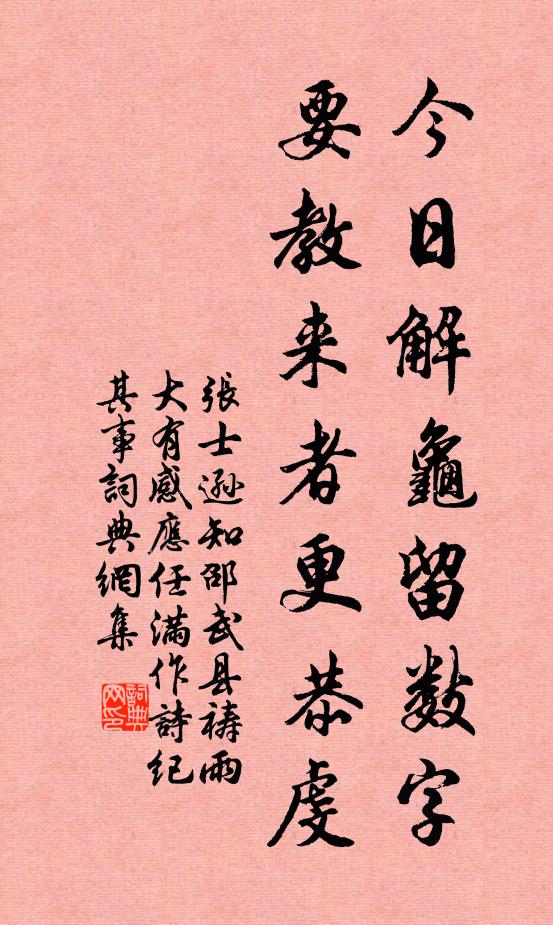 今日解龜留数字
要教来者更恭虔
張士遜知邵武县禱雨
大有感應任滿作詩紀
其事詞典網集
詞典
网印